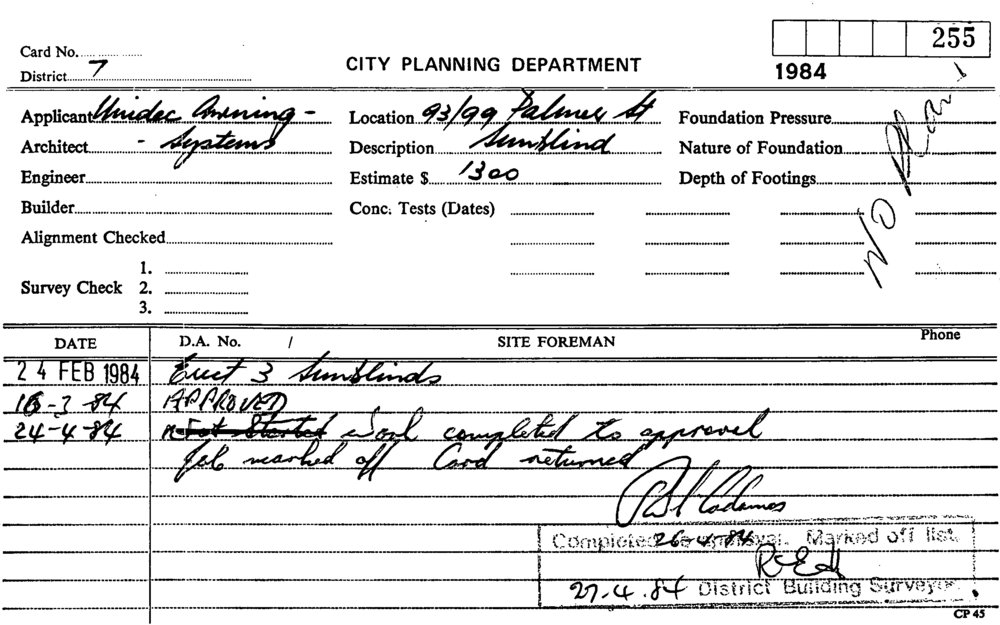 255
Card No.
District 7
CITY PLANNING DEPARTMENT
1984
Applicant Unidec Awning -
Location 93/99 Palmer St
Foundation Pressure
Architect - Systems
Description Sunblind
Nature of Foundation
Engineer
Estimate $ 1300
Depth of Footings
NO PLAN
Builder
Conc. Tests (Dates)
Alignment Checked
Survey Check
1.
2.
3.
DATE
D.A. No. /
SITE FOREMAN
Phone
24 FEB 1984 Erect 3 Sunblinds
16-3-84 APPROVED
24-4-84 Not Started work completed to approval
Job marked off Card returned
26-4-84
Completed to approval. Marked off list.
27.4.84 District Building Surveyor.
CP 45